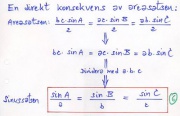 En direkt konsekvens av areasatsen:
Areasatsen: bc·sin A/2 = ac·sin B/2 = ab·sin C/2
bc·sin A = ac·sin B = ab·sin C
dividera med a·b·c
Sinussatsen sin A/a = sin B/b = sin C/c